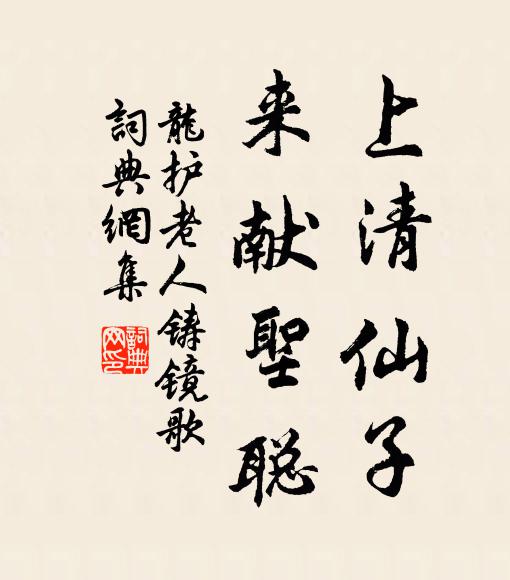 上清仙子
来献聖聪
龍护老人铸镜歌
詞典網集
詞典網印